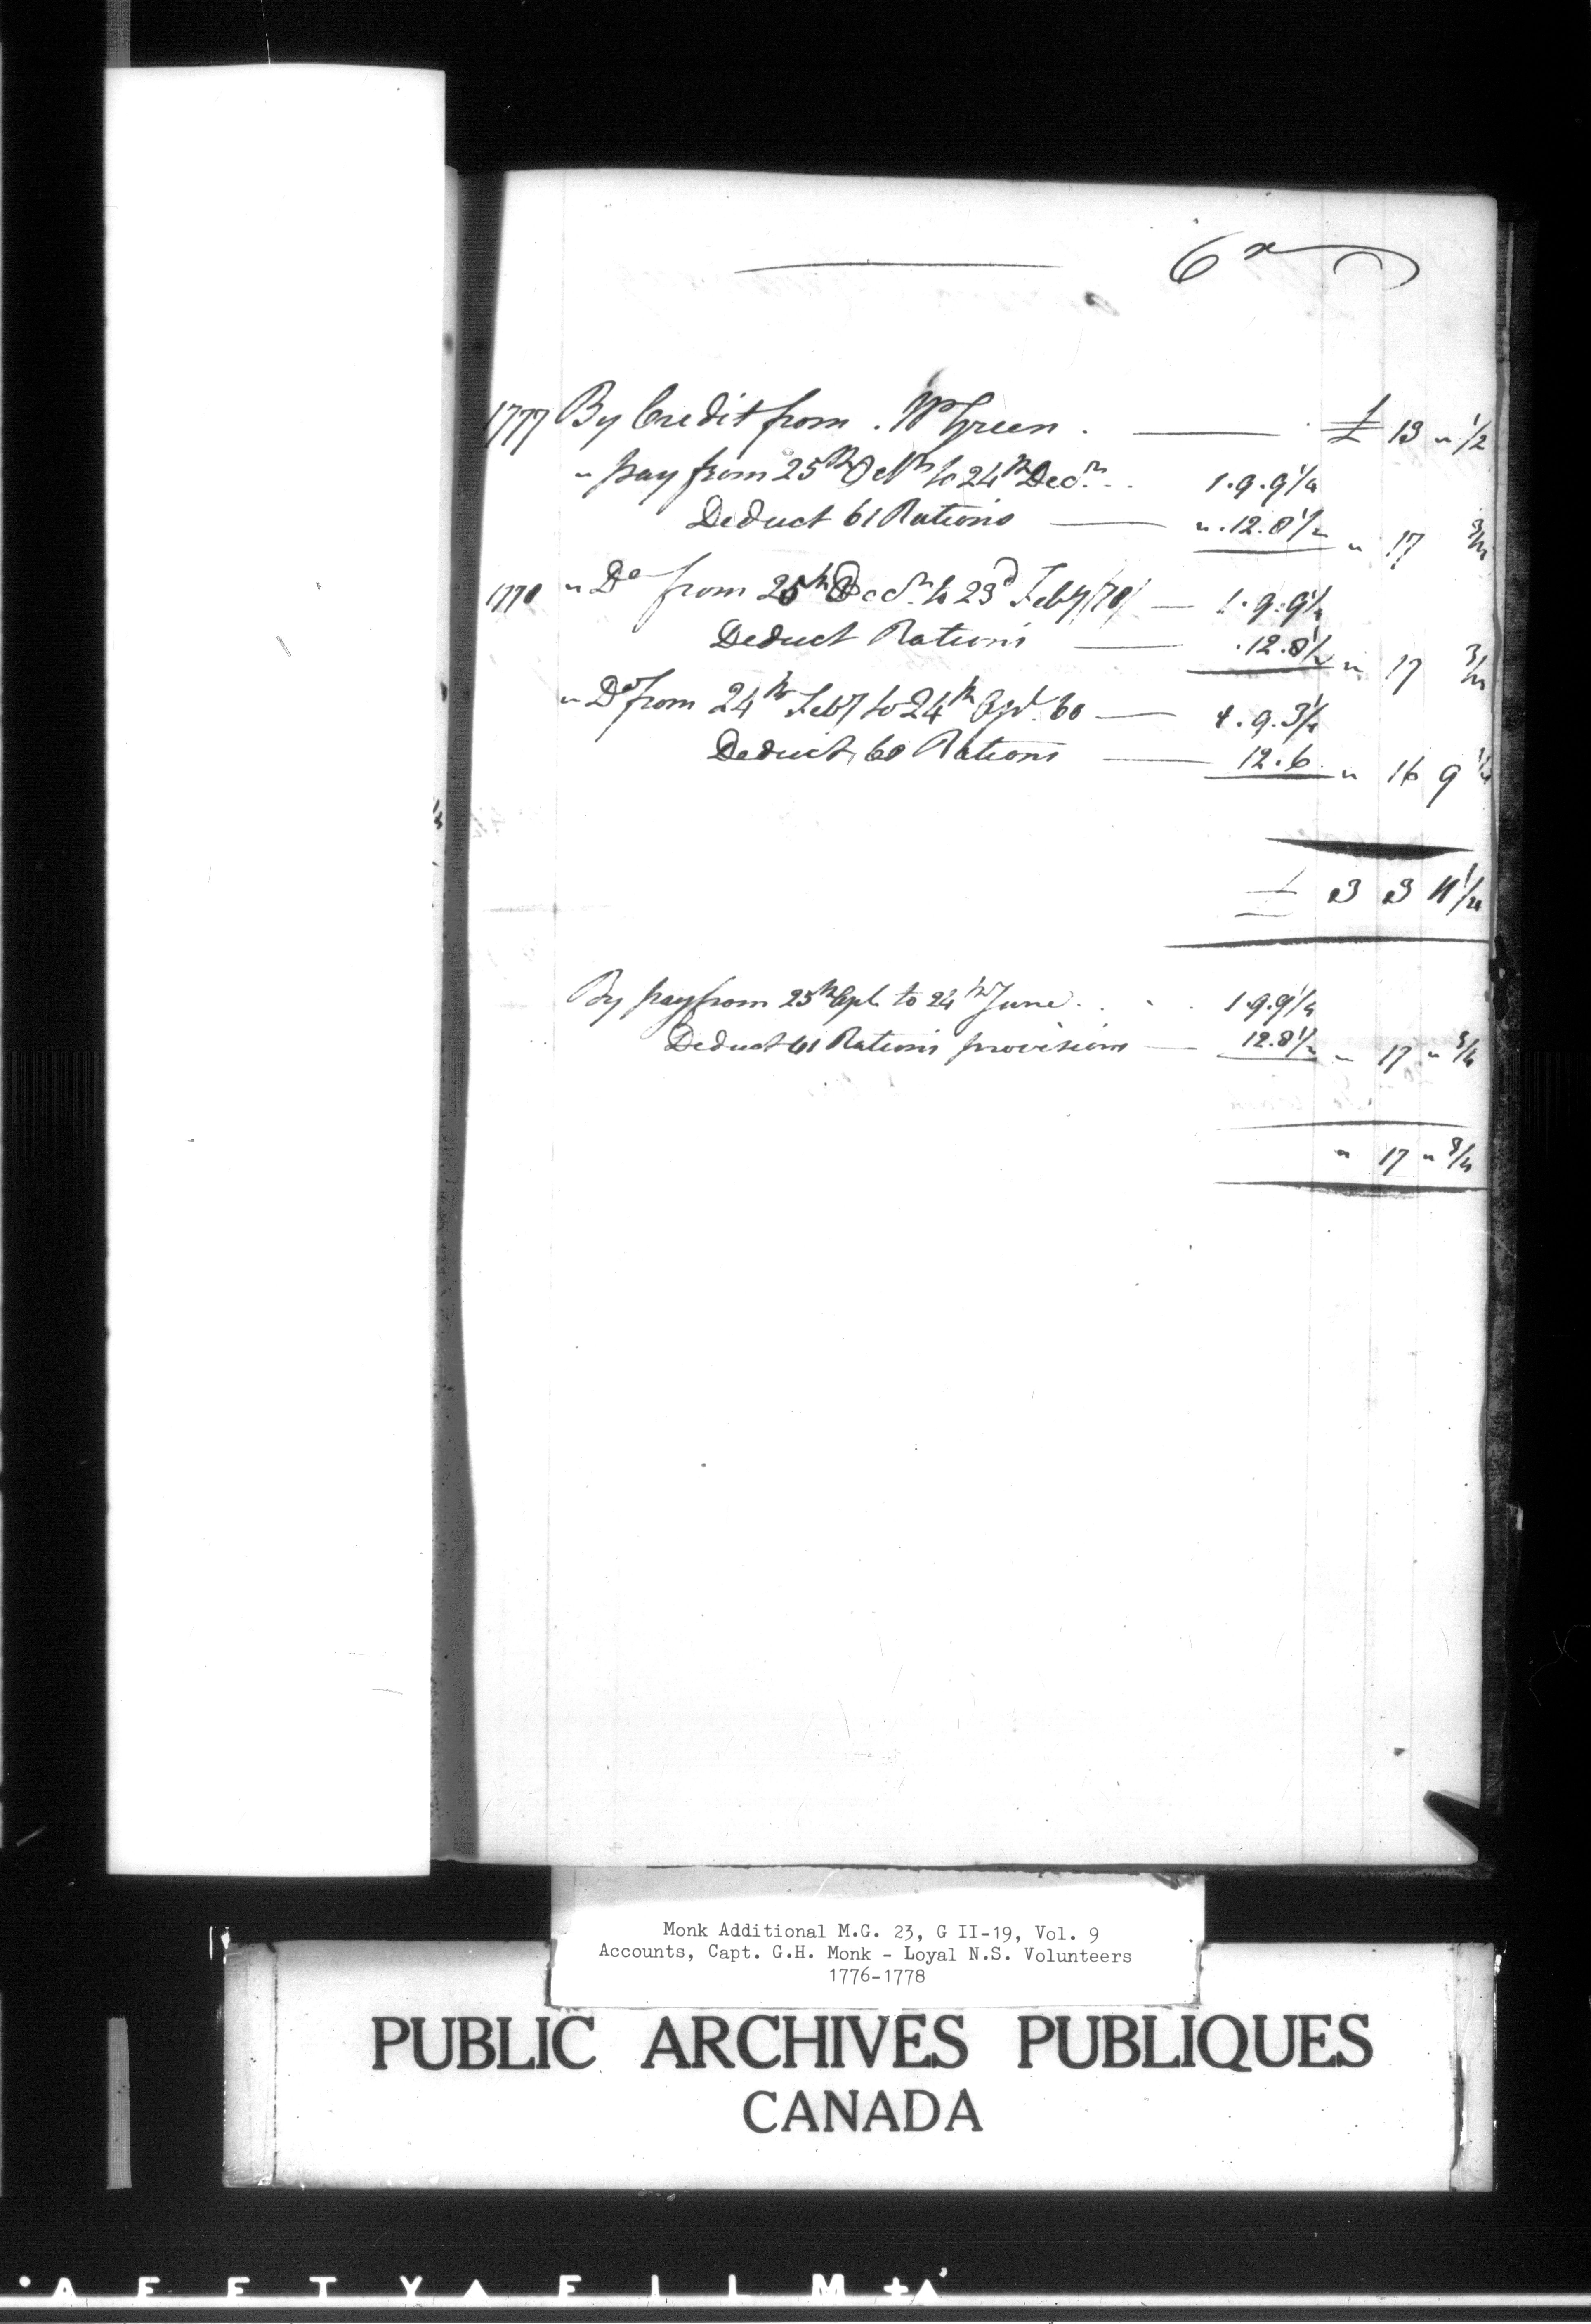 Cr
1777 By Credit from Mr Green. £ 13 " 1/2
" pay from 25th Octr to 24th Decr 1.9.9 1/4
Deduct 61 Rations ".12.8 1/2 " 17 3/4
1778 " Do from 25th Decr to 23d Feby /78/ 1.9.9 1/4
Deduct Rations .12.8 1/2 " 17 3/4
" Do from 24th Feby to 24th Apl. 60 1.9.3 1/4
Deduct 60 Rations 12.6 " 16 9 1/4
£ 3 3 11 1/4
By pay from 25th Apl to 24th June 1.9.9 1/4
Deduct 61 Rations provisions 12.8 1/2 " 17 " 3/4
" 17 " 3/4
Monk Additional M.G. 23, G II-19, Vol. 9
Accounts, Capt. G.H. Monk - Loyal N.S. Volunteers
1776-1778
PUBLIC ARCHIVES PUBLIQUES
CANADA
A F E T Y FILM